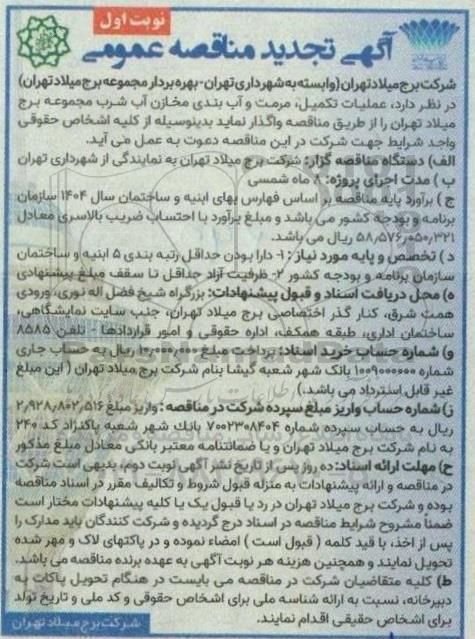 نوبت اول
آگهی تجدید مناقصه عمومی
شرکت برج میلاد تهران (وابسته به شهرداری تهران - بهره بردار مجموعه برج میلاد تهران)
در نظر دارد، عملیات تکمیل، مرمت و آب بندی مخازن آب شرب مجموعه برج
میلاد تهران را از طریق مناقصه واگذار نماید بدینوسیله از کلیه اشخاص حقوقی
واجد شرایط جهت شرکت در این مناقصه دعوت به عمل می آید.
الف) دستگاه مناقصه گزار: شرکت برج میلاد تهران به نمایندگی از شهرداری تهران
ب) مدت اجرای پروژه: ۷ ماه شمسی
ج) برآورد پایه مناقصه بر اساس فهارس بهای ابنیه و ساختمان سال ۱۴۰۴ سازمان
برنامه و بودجه کشور می باشد و مبلغ برآورد با احتساب ضریب بالاسری معادل
۵۸,۵۷۶,۰۵۰,۳۲۱ ریال می باشد.
د) تخصص و پایه مورد نیاز: ۱- دارا بودن حداقل رتبه بندی ۵ ابنیه و ساختمان
سازمان برنامه و بودجه کشور ۲- ظرفیت آزاد حداقل تا سقف مبلغ پیشنهادی
ه) محل دریافت اسناد و قبول پیشنهادات: بزرگراه شیخ فضل اله نوری، ورودی
همت شرق، کنار گذر اختصاصی برج میلاد تهران، جنب سایت نمایشگاهی،
ساختمان اداری، طبقه همکف، اداره حقوقی و امور قراردادها - تلفن ۸۵۸۵
و) شماره حساب خرید اسناد: پرداخت مبلغ ۱,۰۰۰,۰۰۰ ریال به حساب جاری
شماره ۱۰۰۹۰۰۰۰۰۰ بانک شهر شعبه گیشا بنام شرکت برج میلاد تهران (این مبلغ
غیر قابل استرداد می باشد.)
ز) شماره حساب واریز مبلغ سپرده شرکت در مناقصه: واریز مبلغ ۲,۹۲۸,۸۰۲,۵۱۶
ریال به حساب سپرده شماره ۷۰۰۲۳۰۸۴۰۴ بانک شهر شعبه پاکنژاد کد ۲۴۰
به نام شرکت برج میلاد تهران و یا ضمانتنامه معتبر بانکی معادل مبلغ مذکور
ح) مهلت ارائه اسناد: ده روز پس از تاریخ نشر آگهی نوبت دوم، بدیهی است شرکت
در مناقصه و ارائه پیشنهادات به منزله قبول شروط و تکالیف مقرر در اسناد مناقصه
بوده و شرکت برج میلاد تهران در رد یا قبول یک یا کلیه پیشنهادات مختار است
ضمنا مشروح شرایط مناقصه در اسناد درج گردیده و شرکت کنندگان باید مدارک را
پس از اخذ، با قید کلمه (قبول است) امضاء نموده و در پاکتهای لاک و مهر شده
تحویل نمایند و همچنین هزینه هر نوبت آگهی به عهده برنده مناقصه می باشد.
ط) کلیه متقاضیان شرکت در مناقصه می بایست در هنگام تحویل پاکات به
دبیرخانه، نسبت به ارائه شناسه ملی برای اشخاص حقوقی و کد ملی و تاریخ تولد
برای اشخاص حقیقی اقدام نمایند.
شرکت برج میلاد تهران